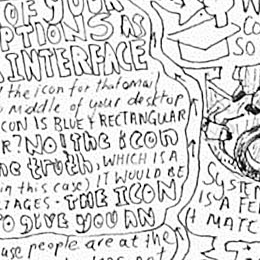 OF YOUR
PTIONS AS
INTERFACE
the icon for that email
middle of your desktop
CON IS BLUE & RECTANGULAR
R? NO! the icon
the truth, WHICH IS A
in this case) IT WOULD BE
TAGES - THE ICON
TO GIVE YOU AN
use people are at the
CO
SO
SYSTEM
IS A FE
MATC